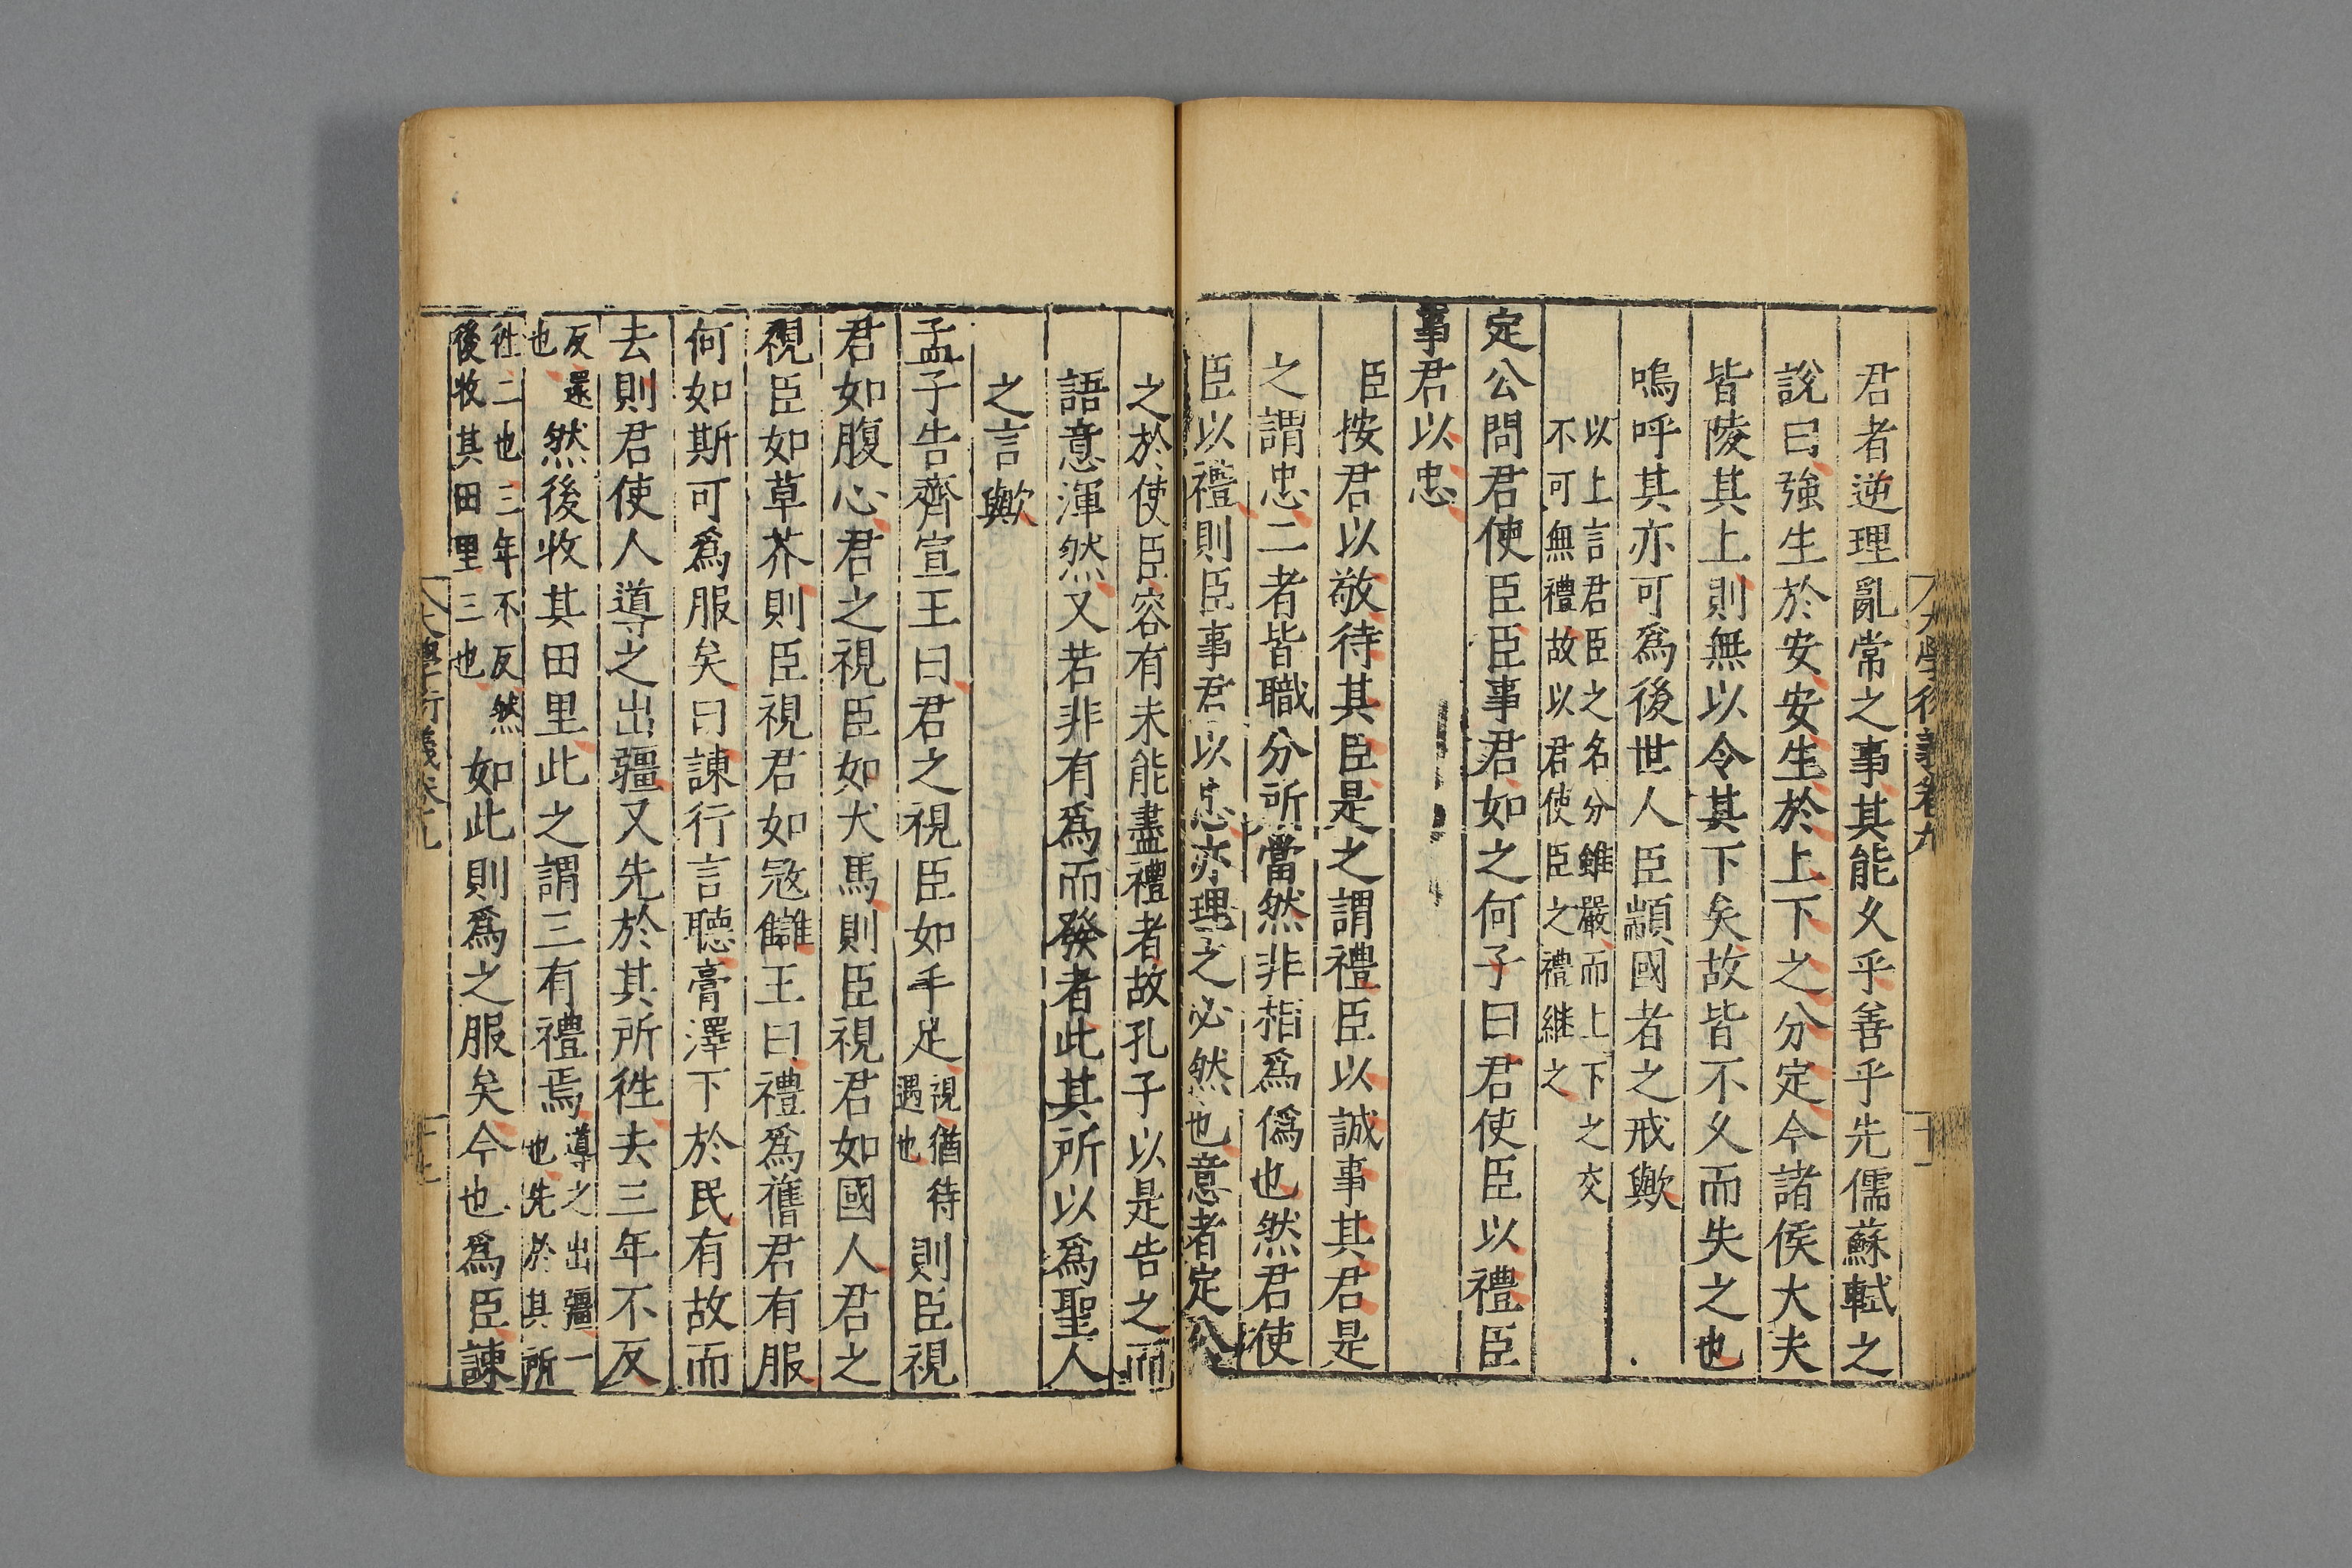 君者逆理亂常之事其能乆乎善乎先儒蘇軾之
說曰強生於安安生於上下之分定今諸侯大夫
皆陵其上則無以令其下矣故皆不乆而失之也
嗚呼其亦可爲後世人臣顓國者之戒歟
以上言君臣之名分雖嚴而上下之交
不可無禮故以君使臣之禮継之
定公問君使臣臣事君如之何子曰君使臣以禮臣
事君以忠
臣按君以敬待其臣是之謂禮臣以誠事其君是
之謂忠二者皆職分所當然非指爲僞也然君使
臣以禮則臣事君以忠亦理之必然也意者定公
之於使臣容有未能盡禮者故孔子以是告之而
語意渾然又若非有爲而發者此其所以爲聖人
之言歟
孟子告齊宣王曰君之視臣如手足
視猶待
遇也
則臣視
君如腹心君之視臣如犬馬則臣視君如國人君之
視臣如草芥則臣視君如冦讎王曰禮爲舊君有服
何如斯可爲服矣曰諫行言聽膏澤下於民有故而
去則君使人導之出疆又先於其所徃去三年不反
反還
也
然後收其田里此之謂三有禮焉
導之出疆一
也先於其所
徃二也三年不反然
後收其田里三也
如此則爲之服矣今也爲臣諫